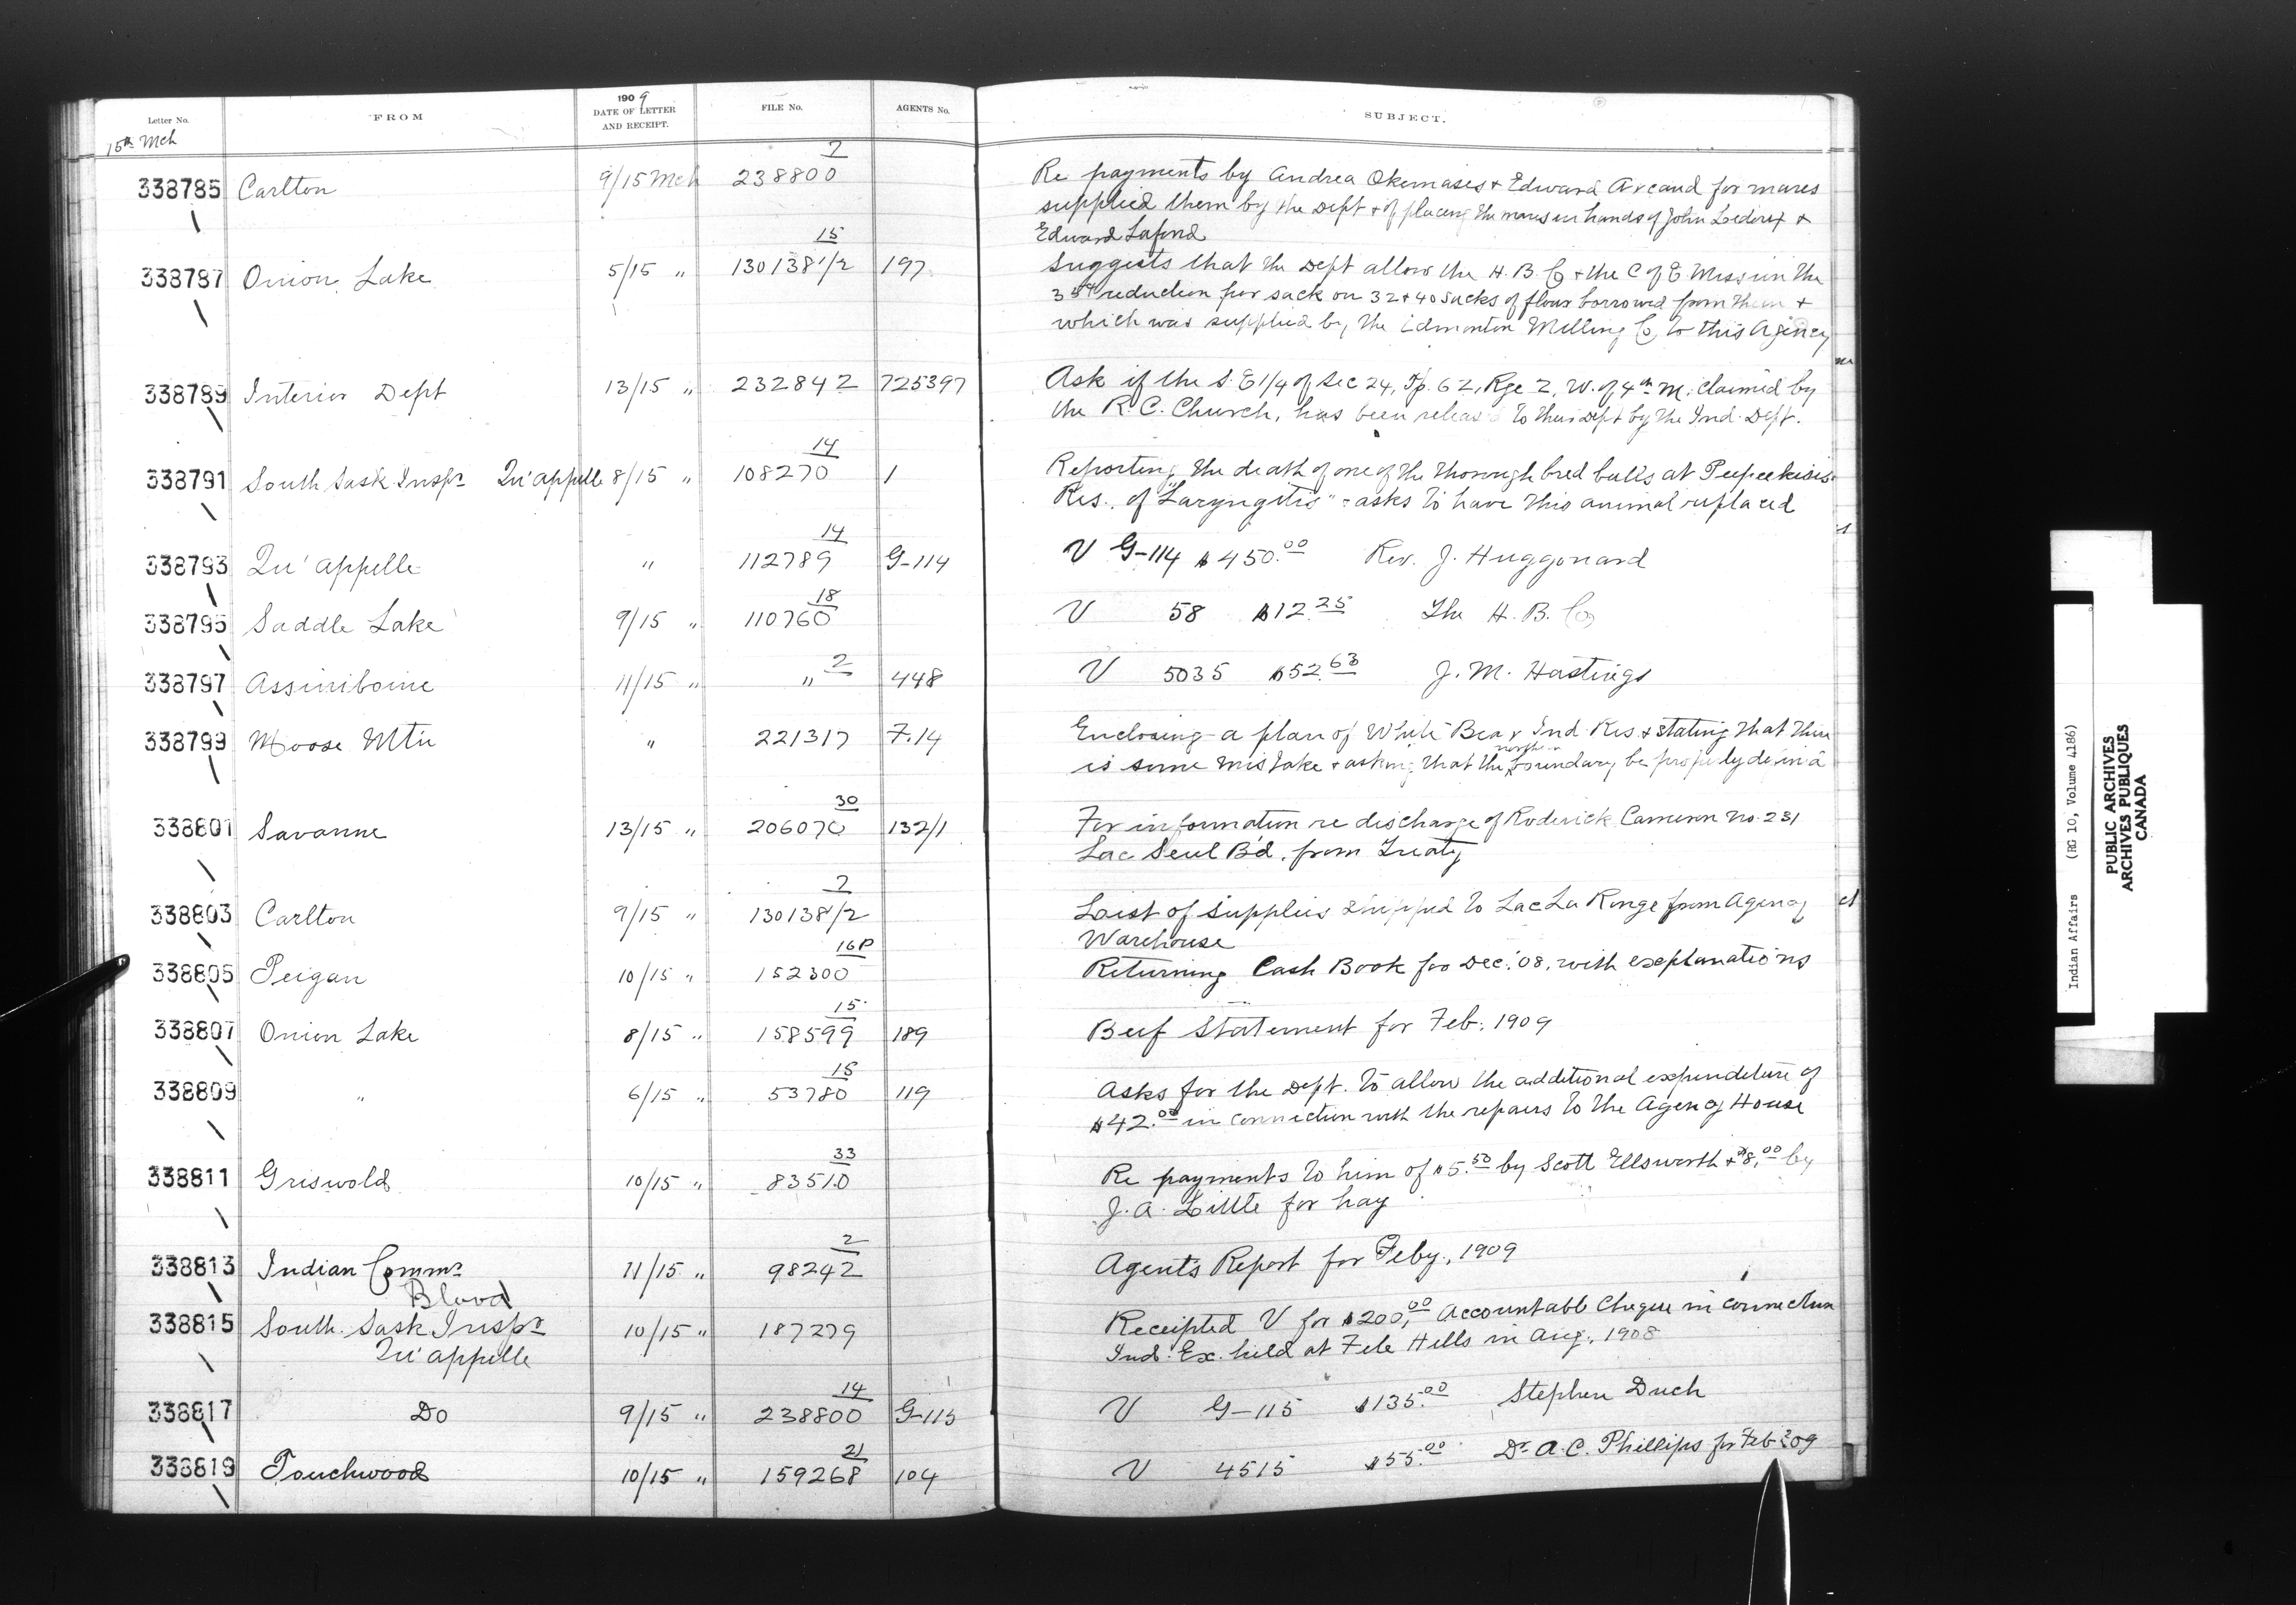 Letter No. FROM 1909 DATE OF LETTER AND RECEIPT. FILE No. AGENTS No. SUBJECT.
15th Mch
338785 Carlton 9/15 Mch 238800 7 Re payments by Andrea Okemases + Edward Arcand for mares
supplied them by the Dept + of placing the mares in hands of John +
Edward Lafond
338787 Onion Lake 5/15 " 130138 1/2 15 197 Suggests that the Dept allow the H. B. Co + the C of E Mission the
35¢ reduction per sack on 32 + 40 sacks of flour borrowed from them +
which was supplied by the Edmonton Milling Co to this Agency
338789 Interior Dept 13/15 " 232842 725397 Ask if the S. E 1/4 of Sec 24, Tp. 62, Rge 2, W. of 4th M. claimed by
the R. C. Church, has been releas to their Dept by the Ind. Dept.
338791 South Sask Inspr Qu'appelle 8/15 " 108270 14 1 Reporting the death of one of the thorough bred bulls at Peepeekisis
Res. of "Laryngitis" - asks to have this animal replaced
338793 Qu'appelle " 112789 14 G-114 V G-114 $450.00 Rev. J. Huggonard
338795 Saddle Lake 9/15 " 110760 18 V 58 $12.25 The H. B. Co
338797 Assiniboine 11/15 " " 2 448 V 5035 $52.63 J. M. Hastings
338799 Moose Mtn " 221317 7.14 Enclosing a plan of White Bear Ind. Res. + stating that there
is some mistake + asking that the northern boundary be properly defined
338801 Savanne 13/15 " 206070 30 132/1 For information re discharge of Roderick Cameron no. 231
Lac Seul B'd. from Treaty
338803 Carlton 9/15 " 130138 1/2 7 List of supplies shipped to Lac La Ronge from Agency
Warehouse
338805 Peigan 10/15 " 152300 16P Returning Cash Book for Dec. '08, with explanations
338807 Onion Lake 8/15 " 158599 15 189 Beef Statement for Feb. 1909
338809 " 6/15 " 53780 15 119 Asks for the Dept. to allow the additional expenditure of
$42.00 in connection with the repairs to the Agency House
338811 Griswold 10/15 " 83510 33 Re payments to him of $5.50 by Scott Ellsworth + $8.00 by
J. A. Little for hay
338813 Indian Commr 11/15 " 98242 2 Agent's Report for Feby., 1909
Blood
338815 South. Sask Inspr 10/15 " 187279 Receipted V for $200.00 Accountable Cheque in connection
Qu'appelle Ind. Ex. held at File Hills in Aug., 1908
338817 Do 9/15 " 238800 14 G-115 V G-115 $135.00 Stephen Duch
338819 Touchwood 10/15 " 159268 21 104 V 4515 $55.00 Dr. A. C. Phillips for Feb 09
Indian Affairs (RG 10, Volume 4186)
PUBLIC ARCHIVES
ARCHIVES PUBLIQUES
CANADA